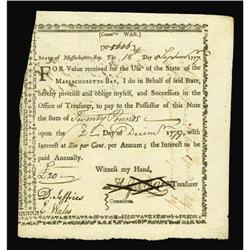 (Continent WAR.)
No 5606
STATE of Massachusetts-Bay, The 18th Day of September 1777
FOR Value received for the Use of the State of the
MASSACHUSETTS BAY, I do in Behalf of said State,
hereby promise and oblige myself, and Successors in the
Office of Treasurer, to pay to the Possessor of this Note
the Sum of Twenty Pounds
upon the Day of Decemr 1779, with
Interest at Six per Cent. per Annum; the Interest to
be paid Annually.
Witness my Hand,
£20
Treasurer
D. Jeffries
Wales
Committee.